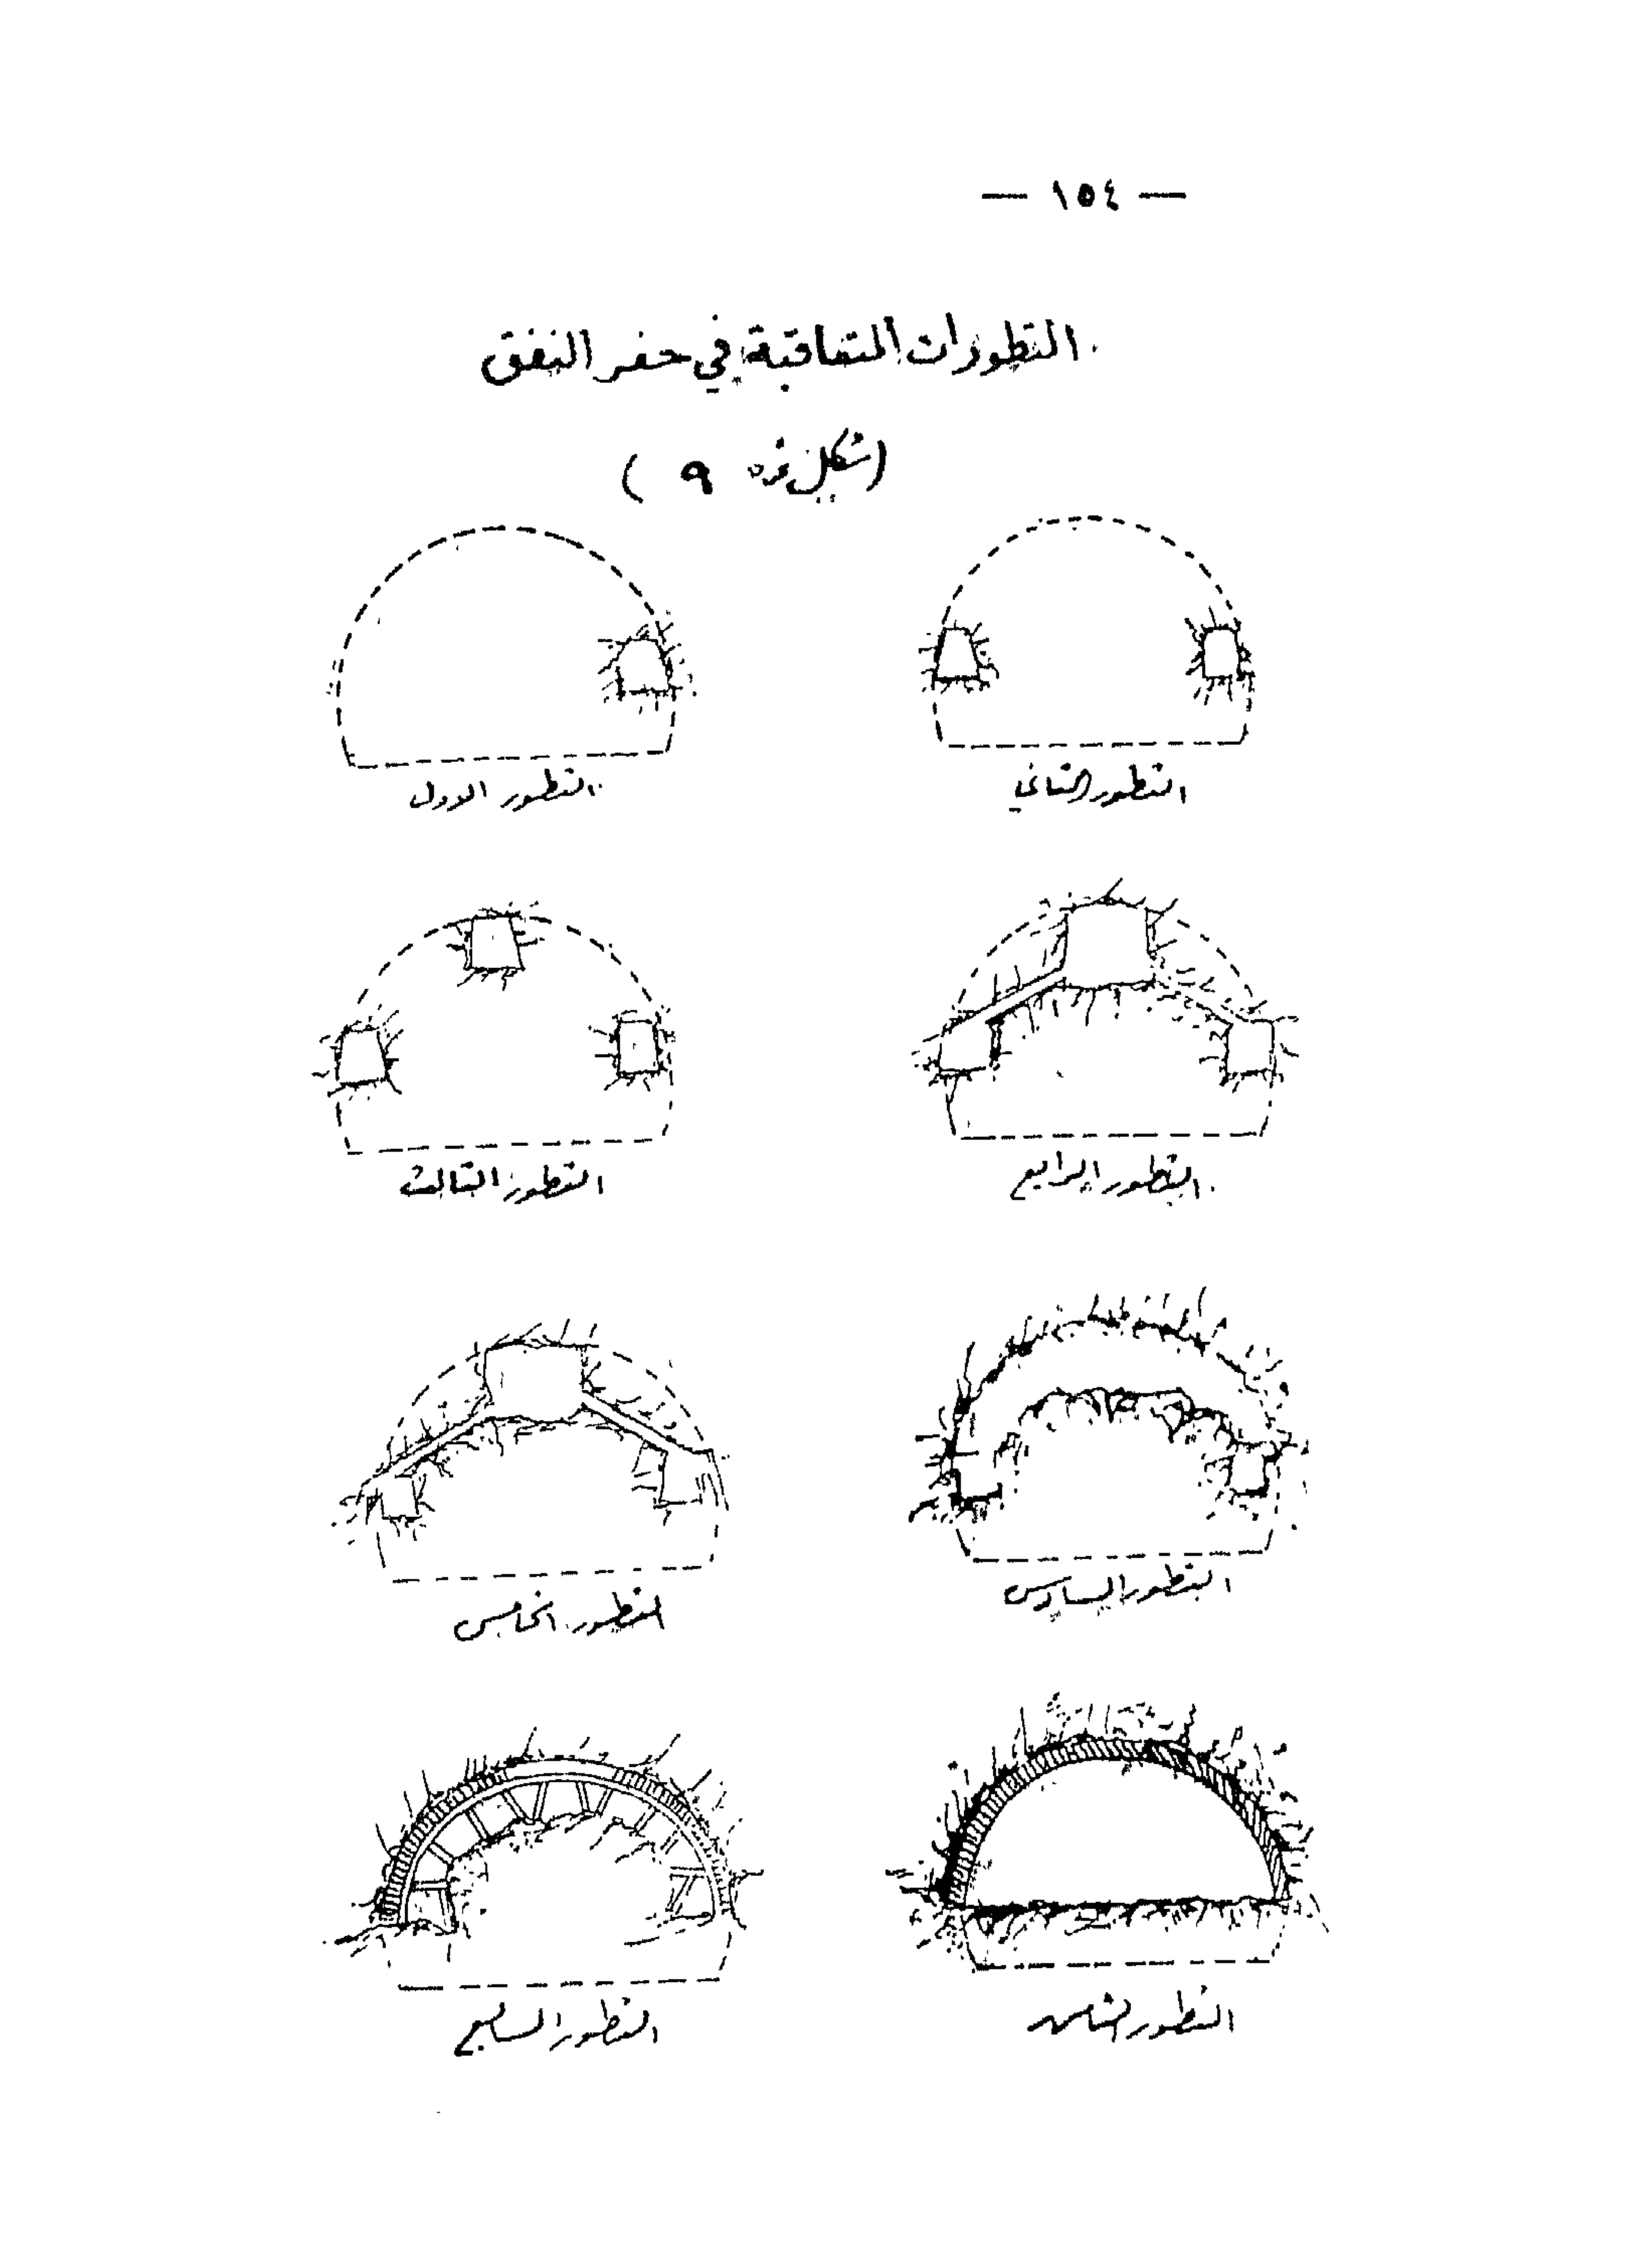 — ١٥٤ —
التطورات المتعاقبة في حفر النفق
(شكل نمره ٩ )
التطور الاول
التطور الثاني
التطور الثالث
التطور الرابع
التطور الخامس
التطور السادس
التطور السابع
التطور الثامن